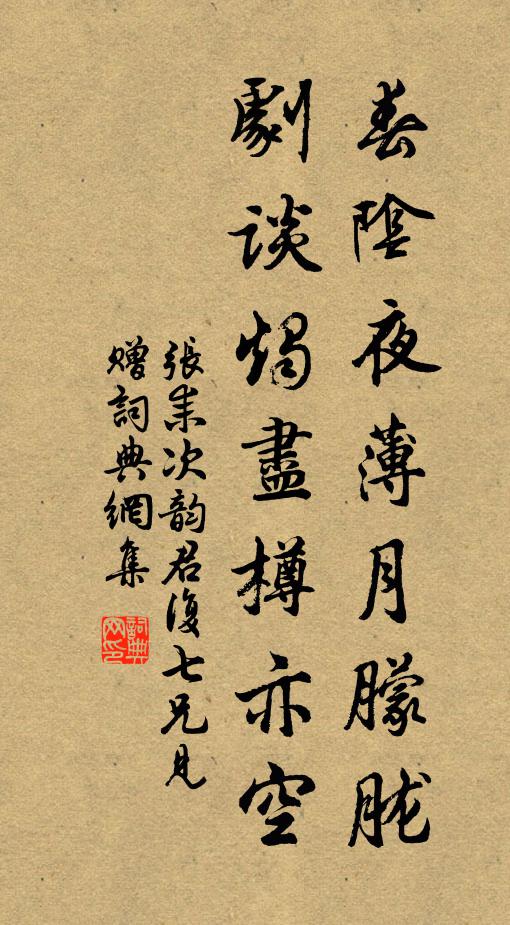 春陰夜薄月朦朧
劇談燭盡樽亦空
張耒次韵君復七兄見
贈詞典網集
詞典
网印